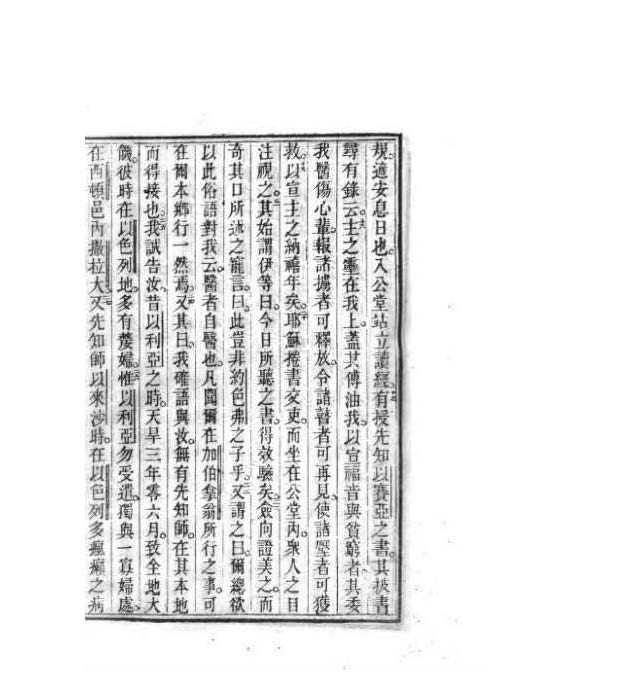 規。適安息日也。入公堂站立讀經。有授先知以賽亞之書。其披書
尋有錄云。主之靈在我上。蓋其傅油我。以宣福音與貧窮者。其委
我醫傷心輩。報諸擄者可釋放。令諸瞽者可再見。使諸壓者可獲
救。以宣主之納禧年矣。耶穌捲書交吏。而坐在公堂內。衆人之目
注視之。其始謂伊等曰。今日所聽之書。得效驗矣。僉向證美之。而
奇其口所述之寵言。曰。此豈非約色弗之子乎。又謂之曰。爾總欲
以此俗語對我云。醫者自醫也。凡聞爾在加伯拿翁所行之事。可
在爾本鄉行一然焉。又其曰。我確語與汝。無有先知師。在其本地
而得接也。我誠告汝。昔以利亞之時。天旱三年零六月。致全地大
饑。彼時在以色列地。多有嫠婦。惟以利亞勿受遣。獨與一寡婦處。
在西頓邑內撒拉大。又先知師以來沙時。在以色列多瘋癩之病